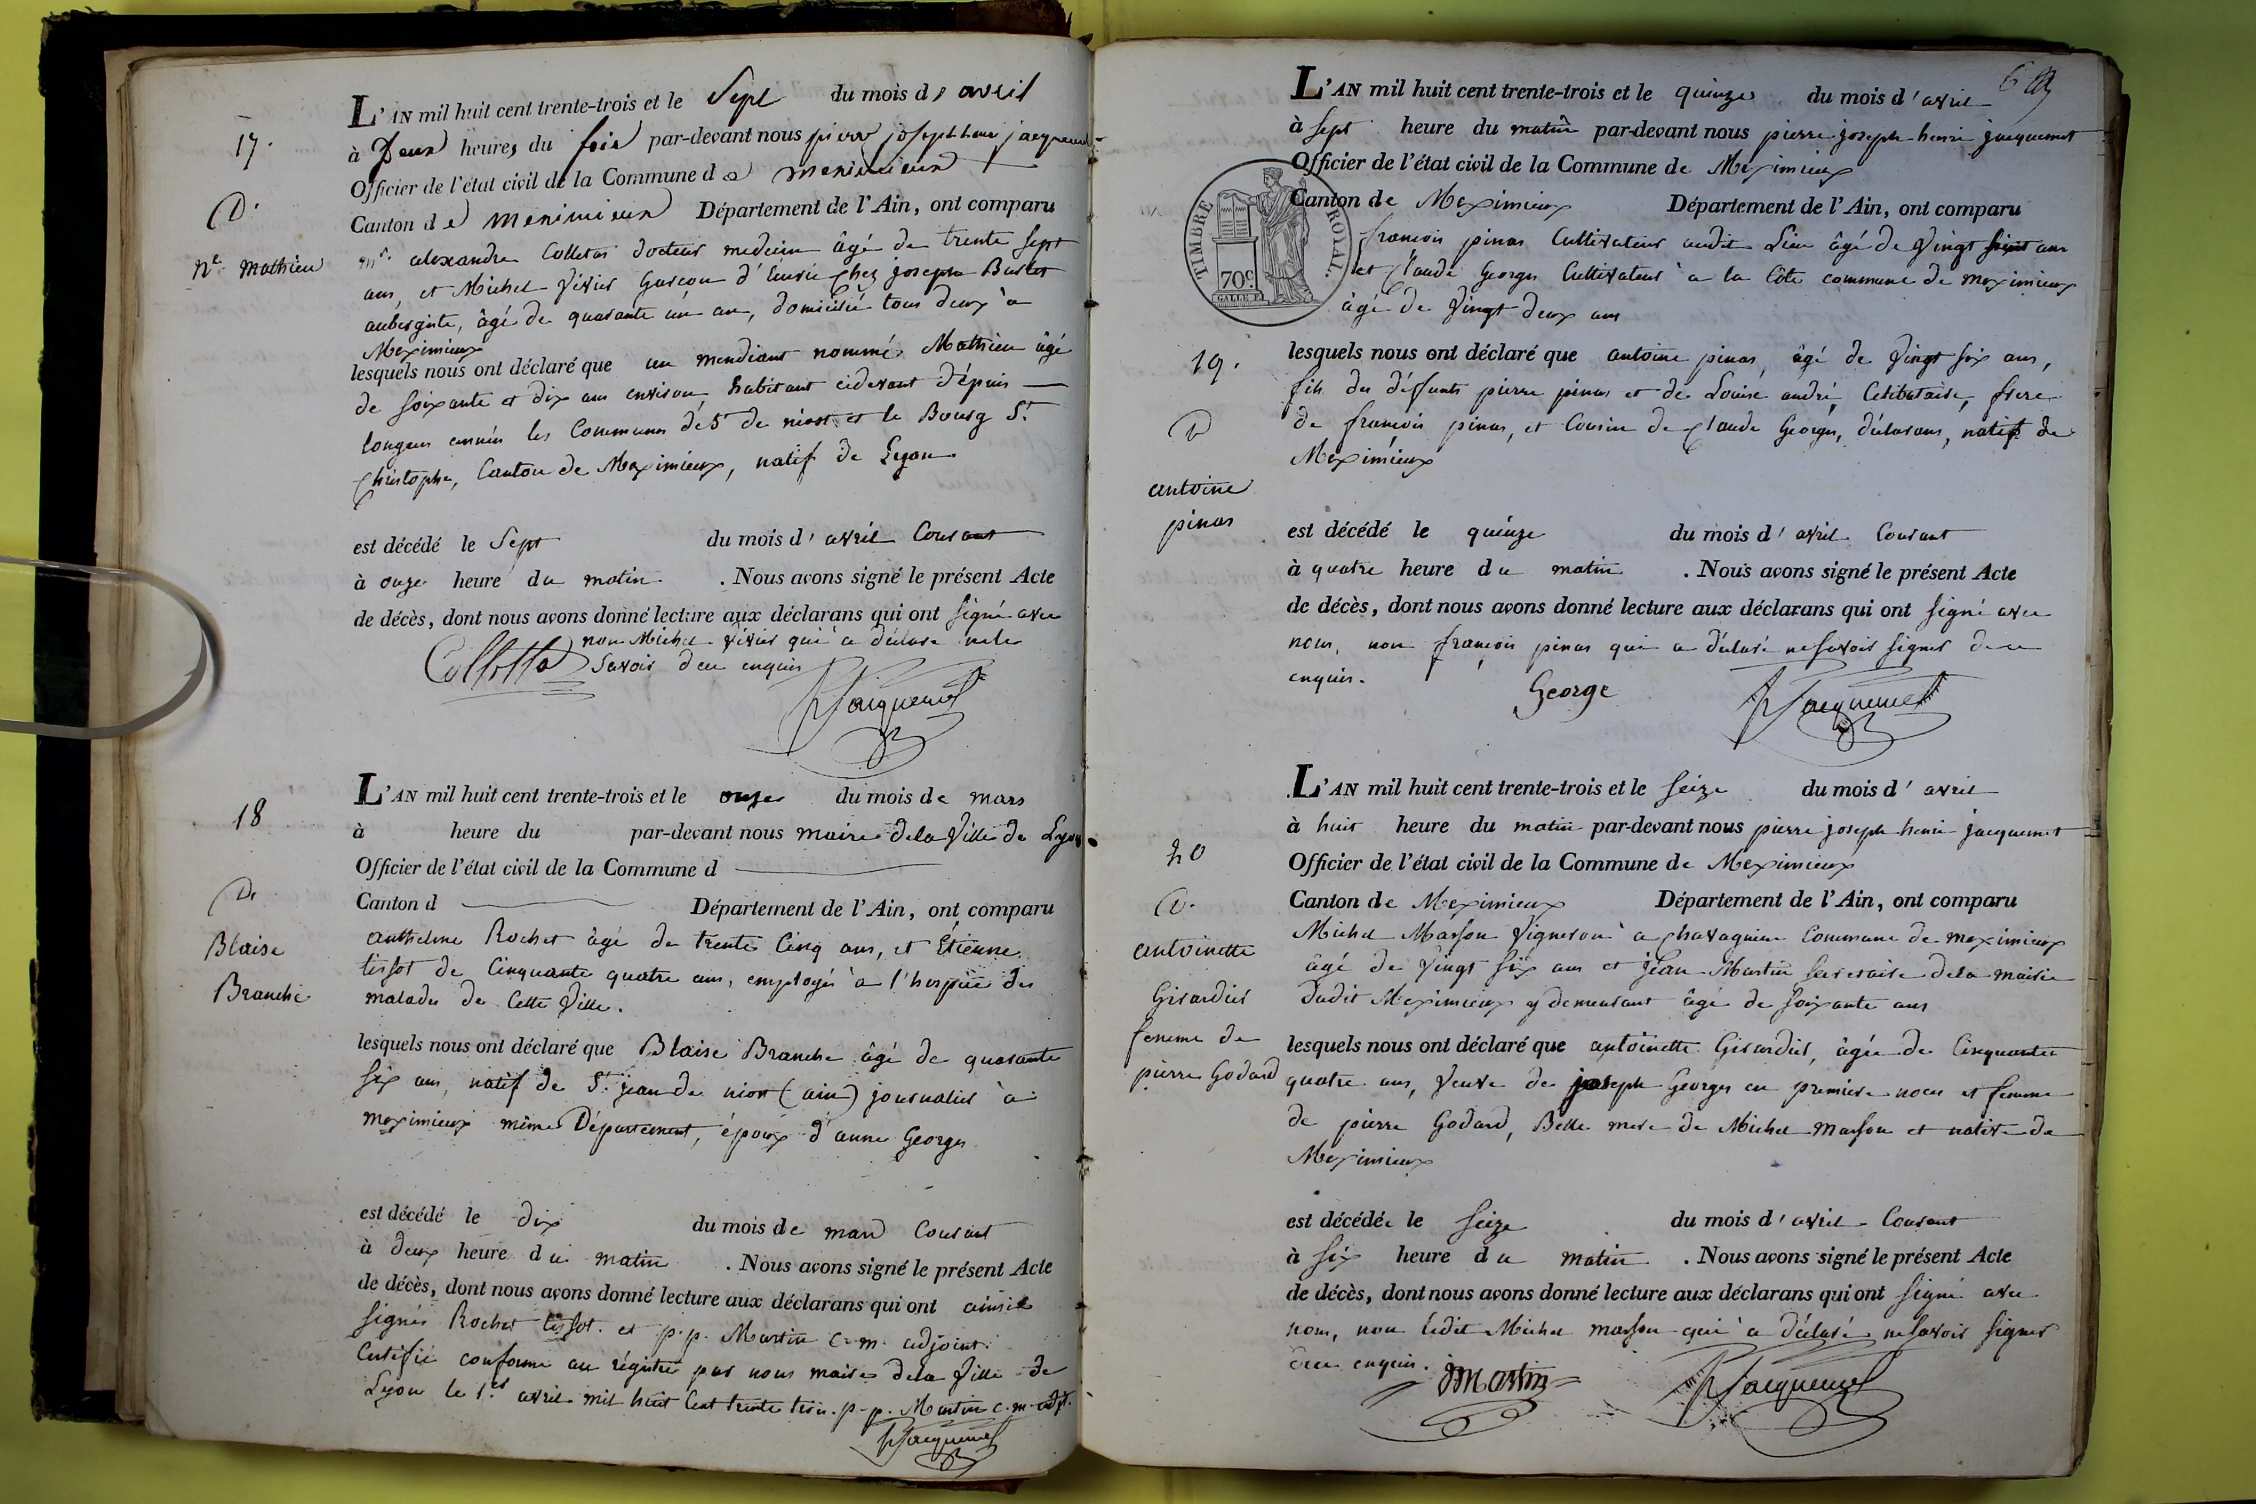 17.
D.
Né Mathieu
L'AN mil huit cent trente-trois et le Sept du mois d'avril
à Deux heures du soir par-devant nous pierre joseph henri jacquemet
Officier de l'état civil de la Commune de meximieux
Canton de meximieux Département de l'Ain, ont comparu
mr. alexandre Collotas docteur medecin âgé de trente sept
ans, et Michel Vivier Garçon d'écurie chez joseph
aubergiste, âgé de quarante un an, domicilié tous deux à
Meximieux
lesquels nous ont déclaré que un mendiant nommé Mathieu âgé
de soixante et dix ans environ, habitant cidevant dépuis
longues années les Communes de St de niost et le Bourg St.
christophe, Canton de Meximieux, natif de Lyon
est décédé le Sept du mois d'avril Courant
à onze heure du matin. . Nous avons signé le présent Acte
de décès, dont nous avons donné lecture aux déclarans qui ont signé avec
nous Michel Vivier qui a déclaré ne le
savoir de ce enquis
PJacquemet
18
D.
Blaise
Branche
L'AN mil huit cent trente-trois et le onze du mois de mars
à heure du par-devant nous maire de la Ville de Lyon
Officier de l'état civil de la Commune d
Canton d Département de l'Ain, ont comparu
anthelme Rochet âgé de trente Cinq ans, et Étienne
tissot de Cinquante quatre ans, employés à l'hospice des
malades de Cette Ville.
lesquels nous ont déclaré que Blaise Branche âgé de quarante
six ans, natif de St. jean de niost (ain) journalier à
meximieux même Département, époux d'anne Georges
est décédé le dix du mois de mars Courant
à deux heure du matin . Nous avons signé le présent Acte
de décès, dont nous avons donné lecture aux déclarans qui ont ainsi
signés Rochet tissot. et p.p. Martin c.m. adjoint.
Certifié conforme au régistre par nous maire de la Ville de
Lyon le 1.er avril mil huit Cent trente trois. p-p. Martin c.m. adjt.
PJacquemet
L'AN mil huit cent trente-trois et le quinze du mois d'avril
à sept heure du matin par-devant nous pierre joseph henri jacquemet
Officier de l'état civil de la Commune de Meximieux
Canton de Meximieux Département de l'Ain, ont comparu
TIMBRE ROYAL.
70c.
françois pinas Cultivateur audit Lieu âgé de vingt ans
et Claude Georges Cultivateur à la Côte commune de meximieux
âgé de vingt deux ans
19.
D
antoine
pinas
lesquels nous ont déclaré que antoine pinas, âgé de vingt six ans,
fils des défunts pierre pinas et de Louise andré, Célibataire, frere
de françois pinas, et Cousin de Claude Georges, déclarans, natif de
Meximieux
est décédé le quinze du mois d'avril Courant
à quatre heure du matin . Nous avons signé le présent Acte
de décès, dont nous avons donné lecture aux déclarans qui ont signé avec
nous, non françois pinas qui a déclaré ne savoir signer de ce
enquis.
George
PJacquemet
20
D.
antoinette
Girardier
femme de
pierre Godard
L'AN mil huit cent trente-trois et le seize du mois d'avril
à huit heure du matin par-devant nous pierre joseph henri jacquemet
Officier de l'état civil de la Commune de Meximieux
Canton de Meximieux Département de l'Ain, ont comparu
Michel Masson Vigneron à chavagnieu Commune de meximieux
âgé de vingt six ans et jean Martin secretaire de la mairie
dudit Meximieux y demeurant âgé de soixante ans
lesquels nous ont déclaré que antoinette Girardier, âgée de Cinquante
quatre ans, Veuve de joseph Georges en premiere noces et femme
de pierre Godard, Belle mere de Michel Masson et native de
Meximieux
est décédée le seize du mois d'avril Courant
à six heure du matin . Nous avons signé le présent Acte
de décès, dont nous avons donné lecture aux déclarans qui ont signé avec
nous, non Ledit Michel masson qui a déclaré ne savoir signer
de ce enquis.
JMartin
PJacquemet